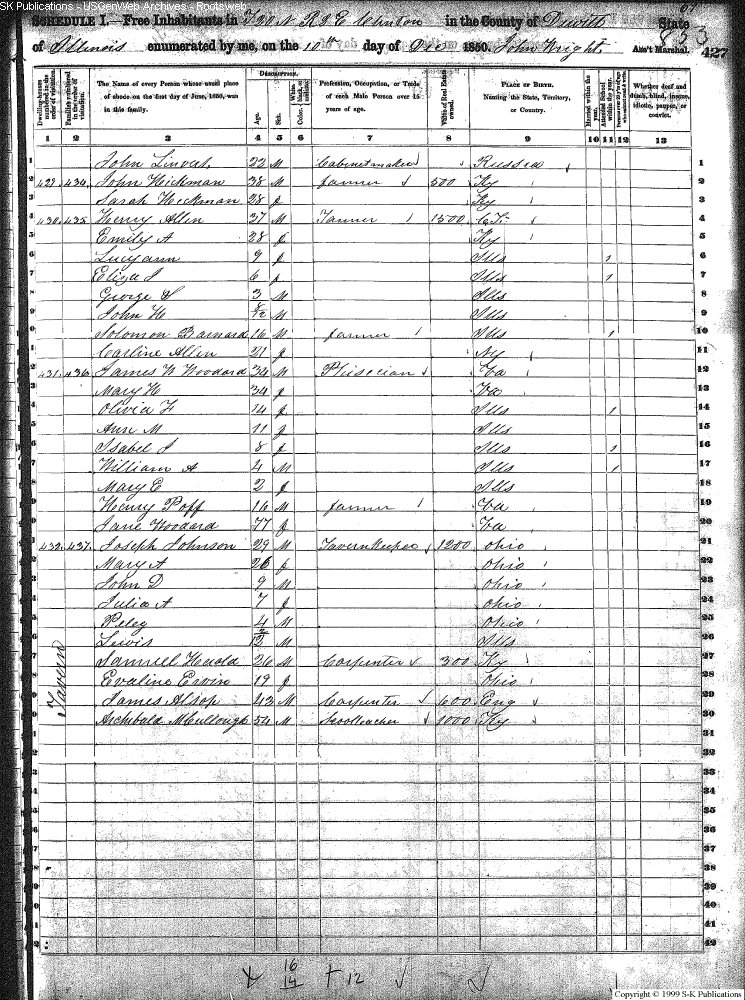 SK Publications - USGenWeb Archives - Rootsweb
SCHEDULE I.—Free Inhabitants in T20N R2E Clinton in the County of Dewitt State
of Illinois enumerated by me, on the 10th day of Dec 1850. John Wright Ass't Marshal.
853
427
Dwelling-houses numbered in the order of visitation. Families numbered in the order of visitation. The Name of every Person whose usual place of abode on the first day of June, 1850, was in this family. DESCRIPTION. Age. Sex. Color Profession, Occupation, or Trade of each Male Person over 15 years of age. Value of Real Estate owned. PLACE OF BIRTH. Naming the State, Territory, or Country. Married within the year. Attended School within the year. Whether deaf and dumb, blind, insane, idiotic, pauper, or convict.
1 2 3 4 5 6 7 8 9 10 11 12 13
1 John 22 M Cabinetmaker Russia 1
2 429 434 John Hickman 38 M farmer 500 Ky 2
3 Sarah Hickman 28 f Ky 3
4 430 435 Henry Allen 27 M Tanner 1500 4
5 Emily A 28 f Ky 5
6 Lucyann 9 f Ills 6
7 Eliza J 6 f Ills 7
8 George S 3 M Ills 8
9 John H /12 M Ills 9
10 Solomon Barnard 16 M farmer Ills 10
11 Carline Allen 21 f 11
12 431 436 James W Woodard 34 M Phisecian Va 12
13 Mary H 34 f Va 13
14 Olivia F 14 f Ills 14
15 Ann M 11 f Ills 15
16 Isabel J 8 f Ills 16
17 William A 4 M Ills 17
18 Mary E 2 f Ills 18
19 Henry Poff 16 M farmer Va 19
20 Jane Woodard 77 f Va 20
21 432 437 Joseph Johnson 29 M Tavernkeeper 1200 Ohio 21
22 Mary A 26 f Ohio 22
23 John D 9 M Ohio 23
24 Julia A 7 f Ohio 24
25 Peley 4 M Ohio 25
26 Lewis /12 M Ills 26
27 Samuel Herold 26 M Carpenter 300 Ky 27
28 Evaline Ervin 19 f Ohio 28
29 James Alsop 43 M Carpenter 600 Eng 29
30 Archibald McCullough 54 M Scoolteacher 1000 Ky 30
Tavern
31 31
32 32
33 33
34 34
35 35
36 36
37 37
38 38
39 39
40 40
41 41
42 42
16
14
+ 12
Copyright © 1999 S-K Publications